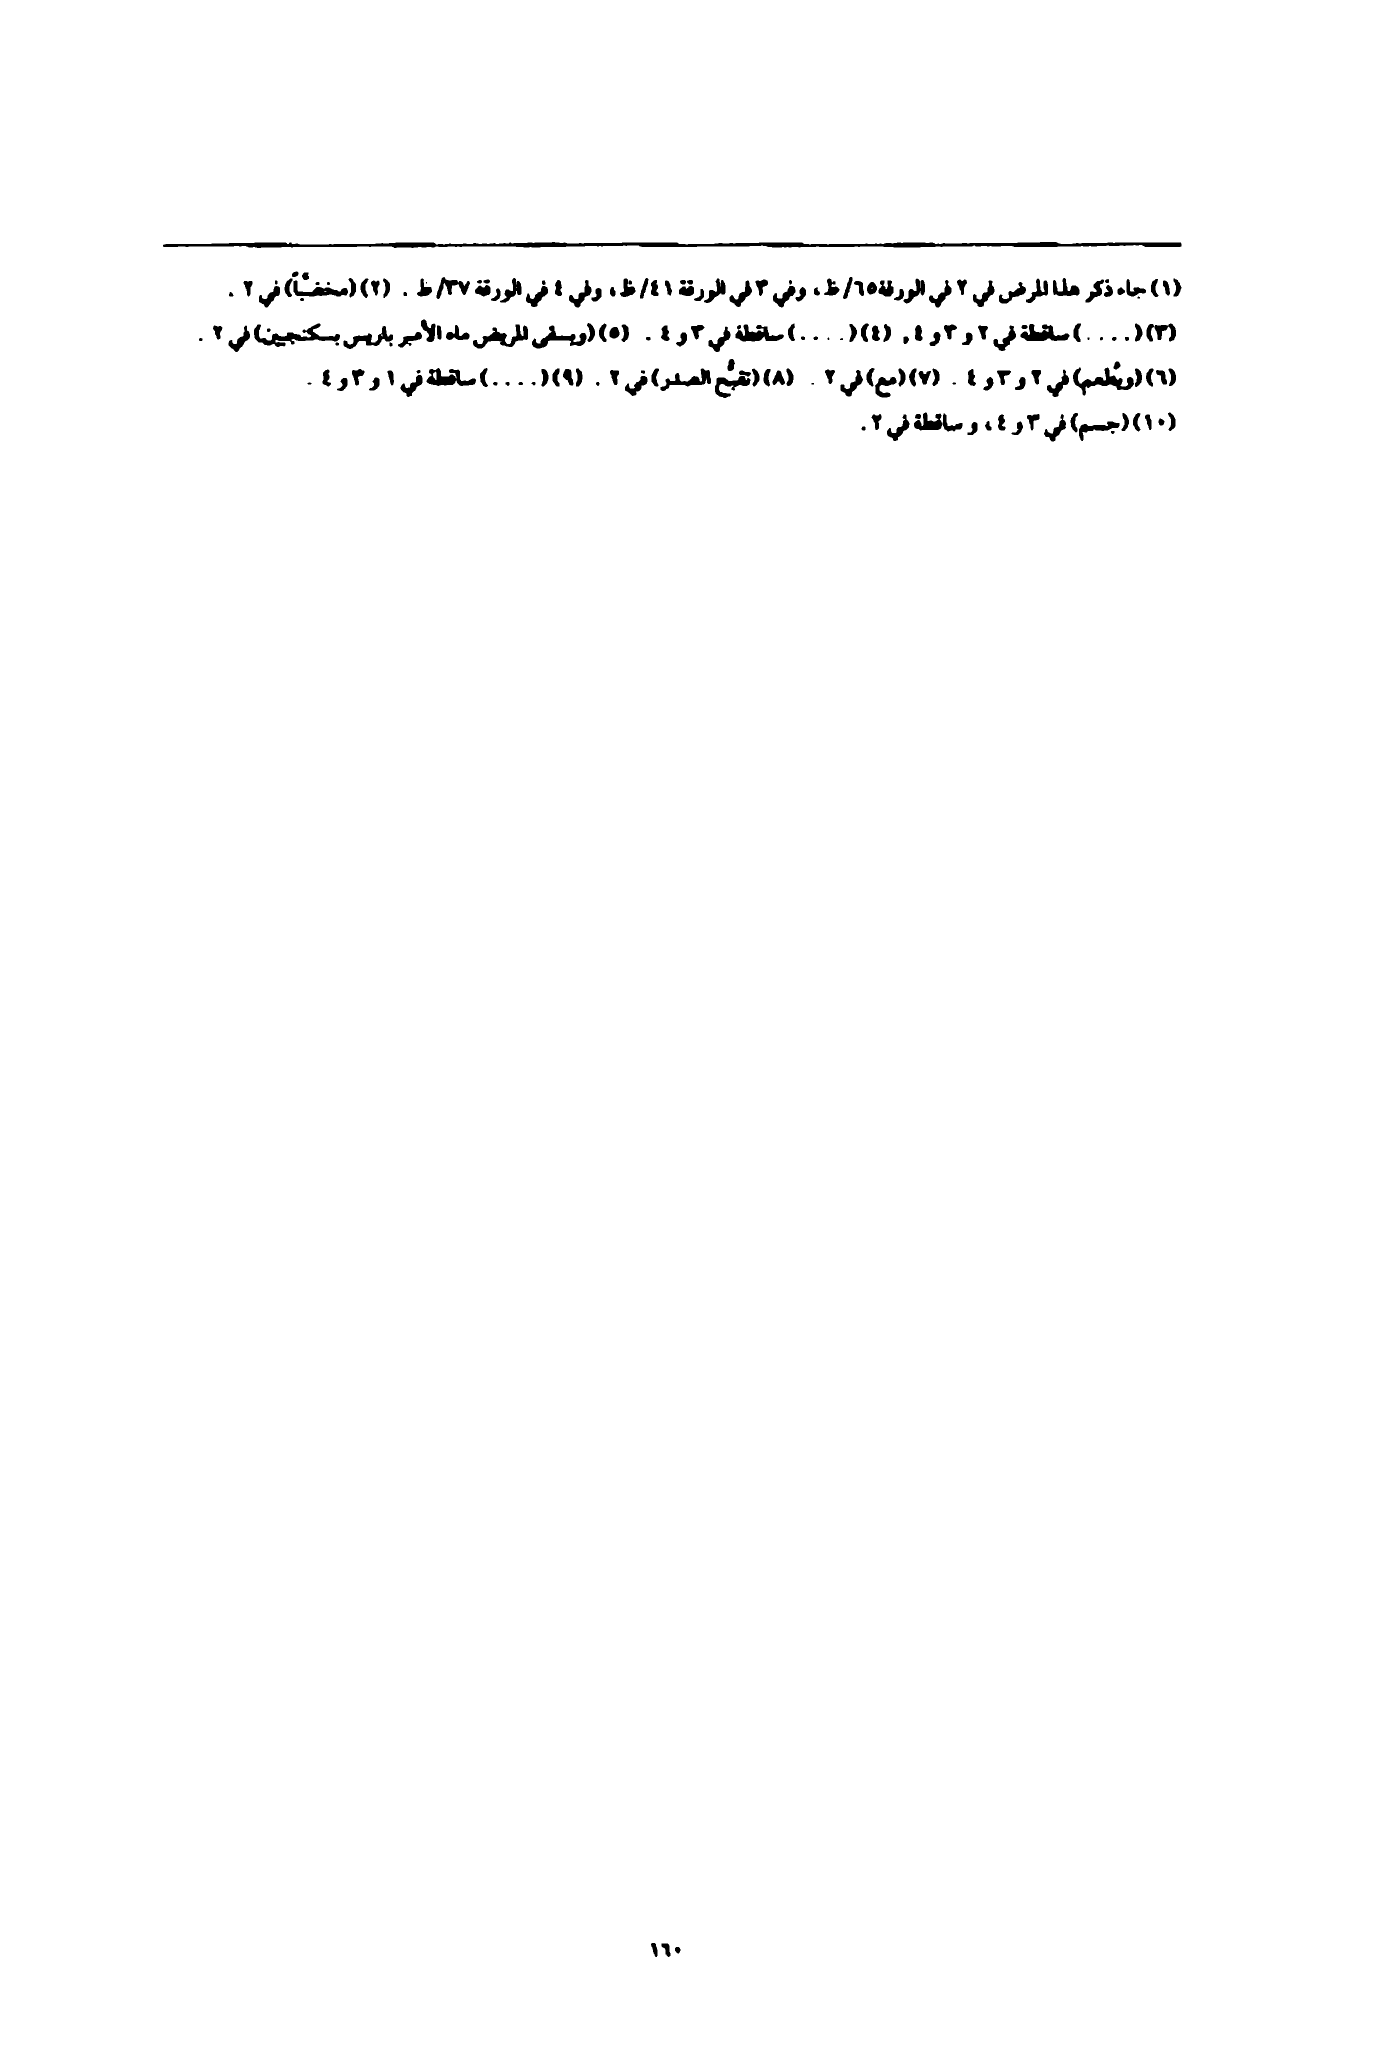 (١) جاء ذكر هذا المرض في ٢ في الورقة ٦٥/ظ، وفي ٣ في الورقة ٤١/ظ، وفي ٤ في الورقة ٣٧/ظ . (٢) (مخضبّاً) في ٢ .
(٣) (....) ساقطة في ٢ و ٣ و ٤ . (٤) (....) ساقطة في ٣ و ٤ . (٥) (ويسقى المريض ماء الأمبر باريس بسكنجبين) في ٢ .
(٦) (ويُطعم) في ٢ و ٣ و ٤ . (٧) (مع) في ٢ . (٨) (تقبُّح الصدر) في ٢ . (٩) (....) ساقطة في ١ و ٣ و ٤ .
(١٠) (جسم) في ٣ و ٤ ، و ساقطة في ٢ .
١٦٠